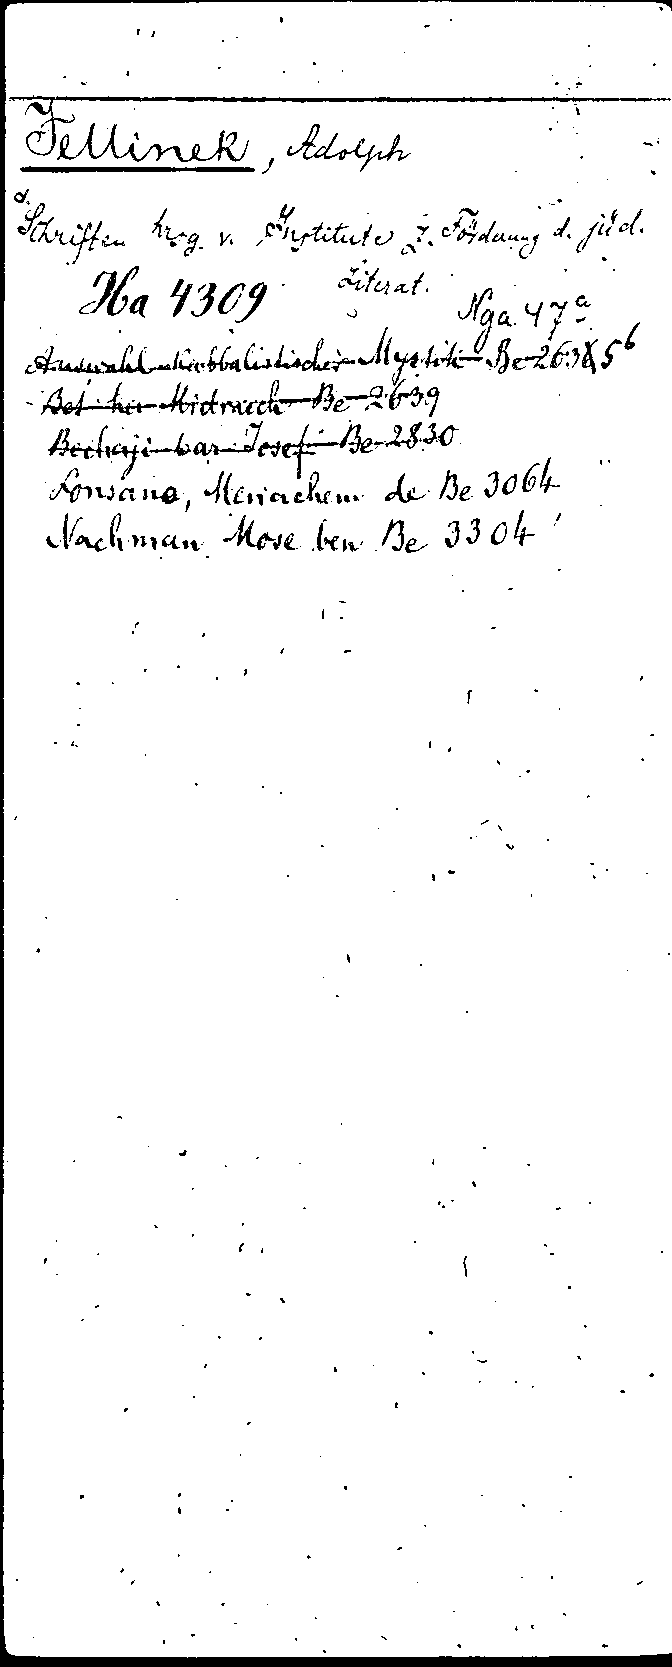 Jellinek, Adolph
d. Schriften hrsg. v. Institute z. Förderung d. jüd.
Literat.
Ha 4309
Nga 47a
Auswahl Kabbalistischer Mystik Be 2638 5b
Bet ha Midrasch Be 2639
Bechaji bar Josef Be 2830
Lonsano, Menachem de Be 3064
Nachman Mose ben Be 3304